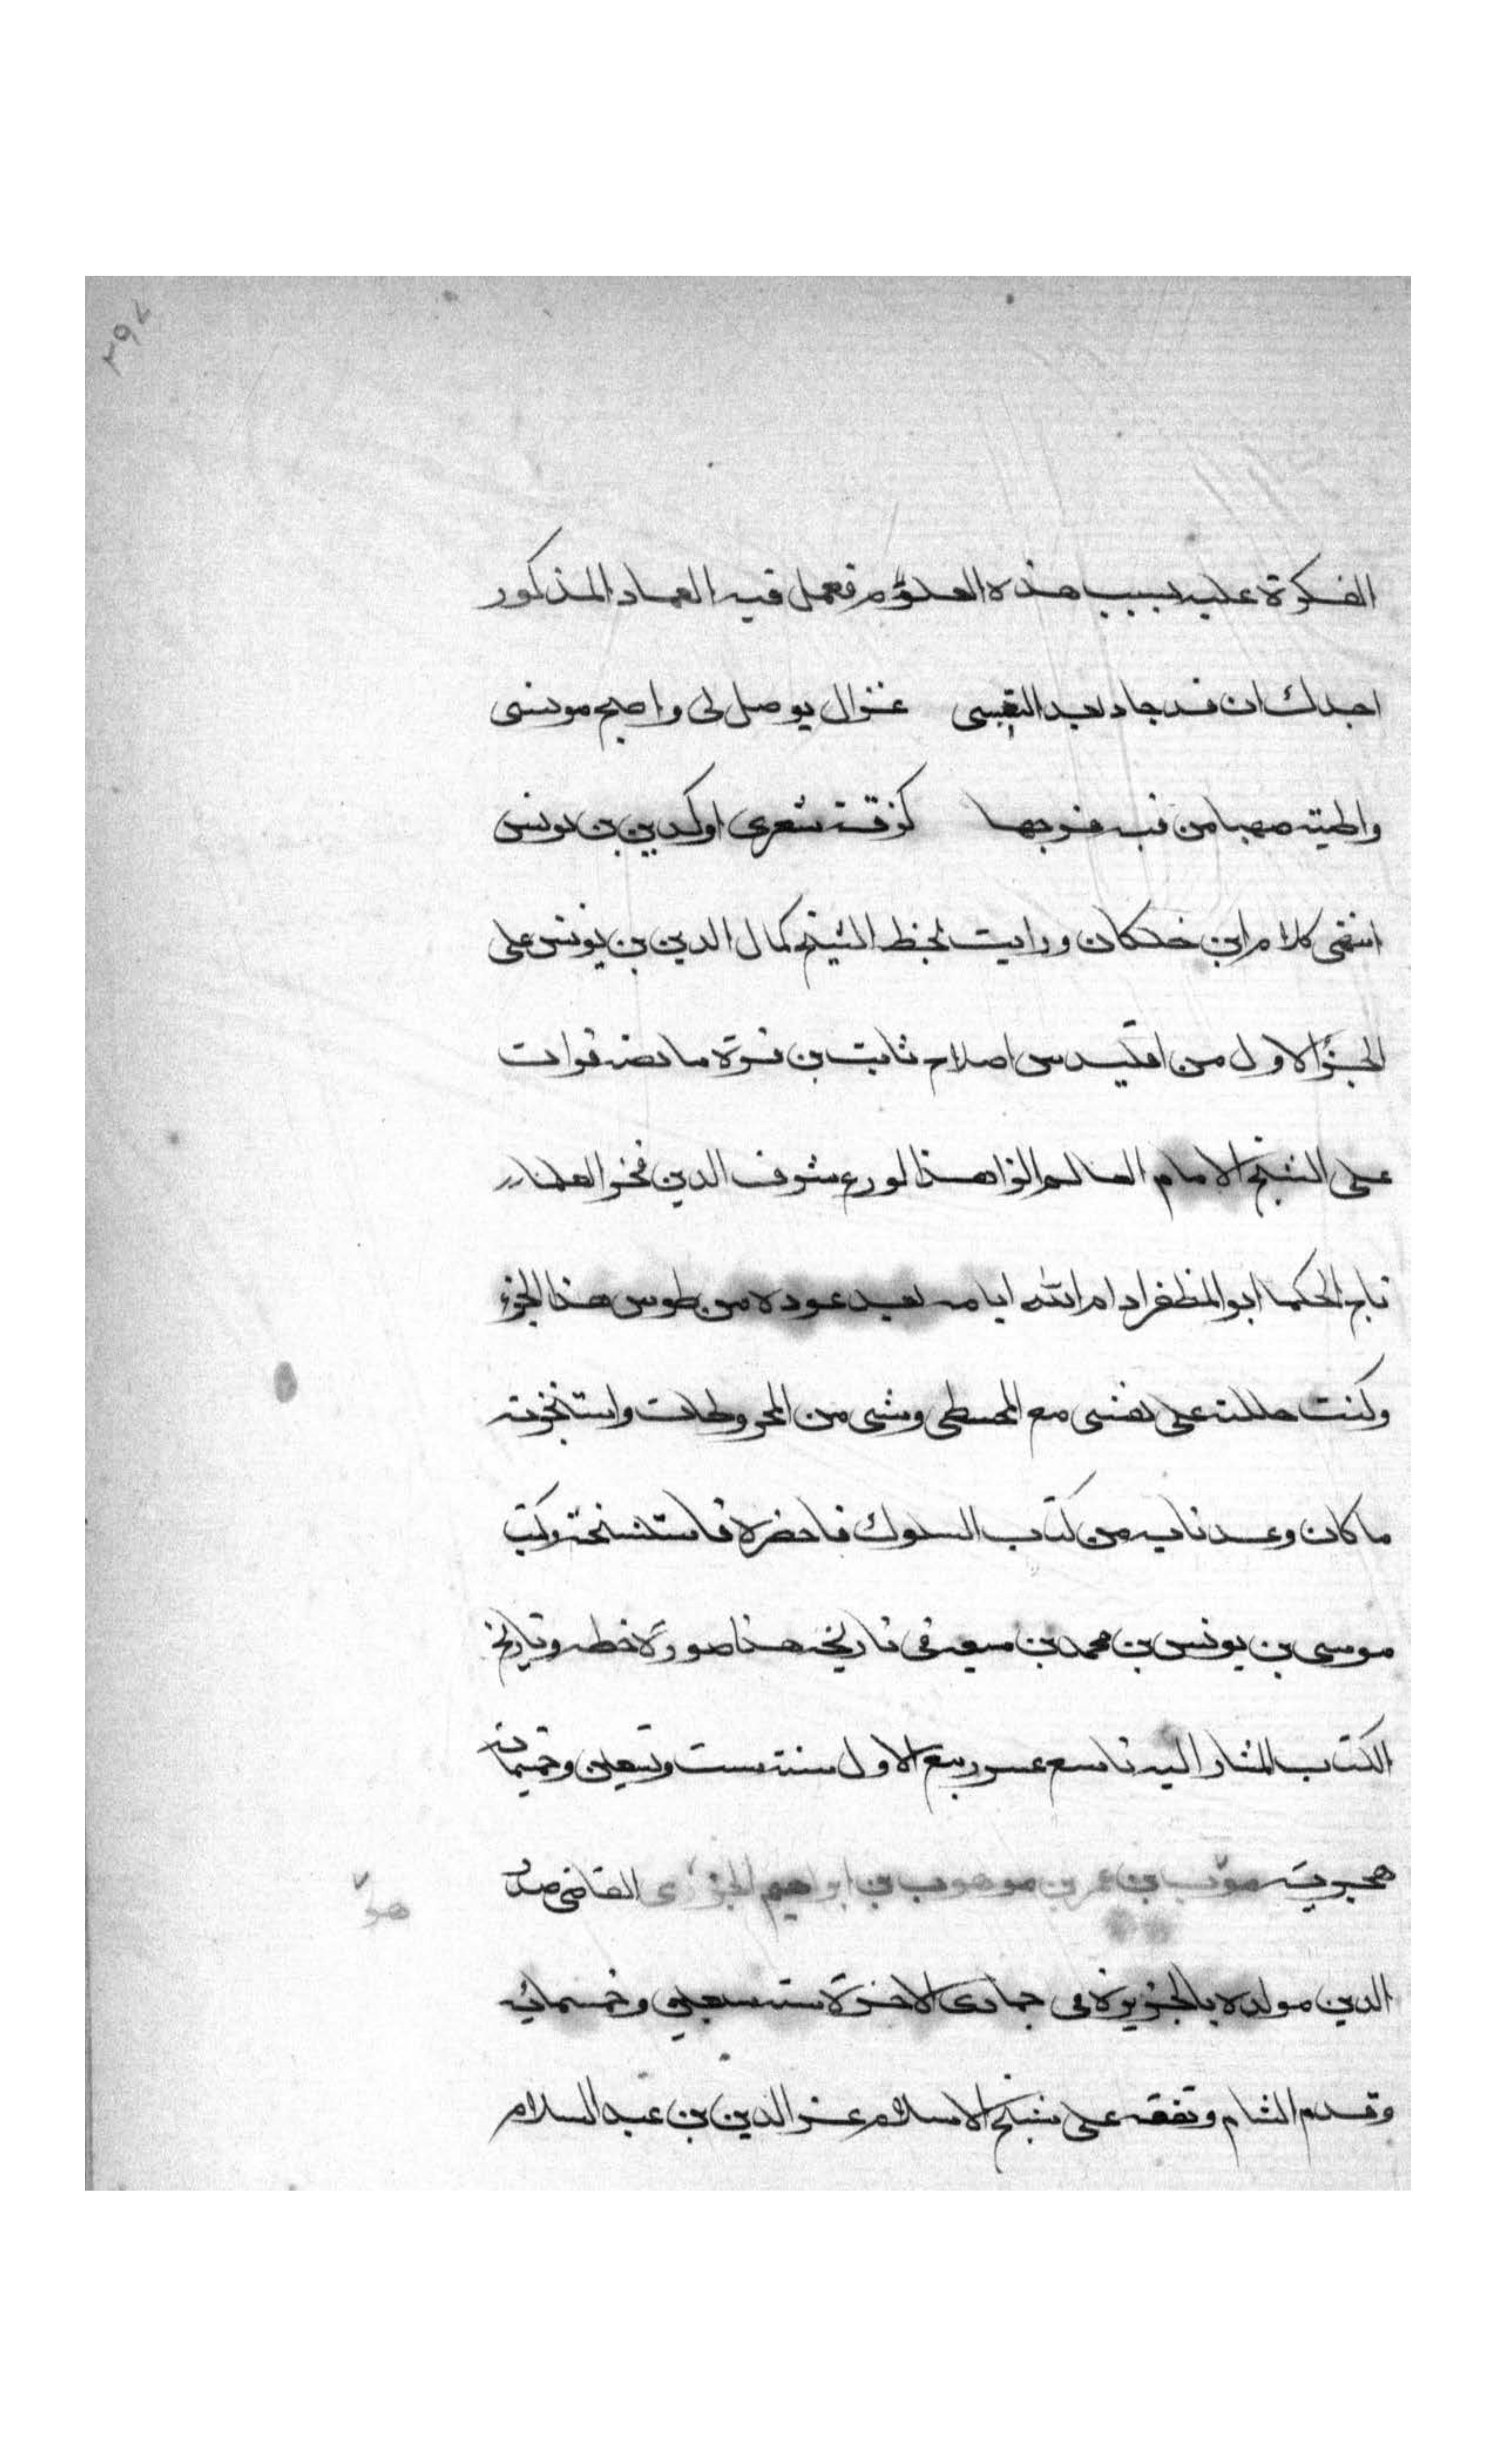 ٢٩٧
الفكرة عليه بسبب هذه العلوم فعمل فيه العماد المذكور
اجدك ان قد جاد بعد التعبس غزال يوصل لى واصبح مونسى
واعطيته صهبا من فيه مزجها كرقة شعرى او كدين بن يونس
انتهى كلام ابن خلكان ورايت بخط الشيخ كمال الدين بن يونس على
الجزؤ الاول من اقليدس اصلاح ثابت بن قرة ما نصه قرات
على الشيخ الامام العالم الزاهد الورع شرف الدين فخر العلما
تاج الحكما ابو المظفر ادام الله ايامه بعد عوده من طوس هذا الجزء
وكنت حللته على نفسى مع المجسطى وشى من المخروطات واستنجزته
ما كان وعدنا به من كتاب السلوك فاحضره فاستنسخته وكتب
موسى بن يونس بن محمد بن منعه فى تاريخه هذا صورة خطه وتاريخ
الكتاب المشار اليه تاسع عشر ربيع الاول سنة ست وسبعين وخمسمائة
هجرية موهوب بن عمر بن موهوب بن ابراهيم الجزرى القاضى صدر
الدين مولده بالجزيرة فى جمادى الاخرة سنة سبعين وخمسمائه
وقدم الشام وتفقه على شيخ الاسلام عز الدين بن عبد السلام